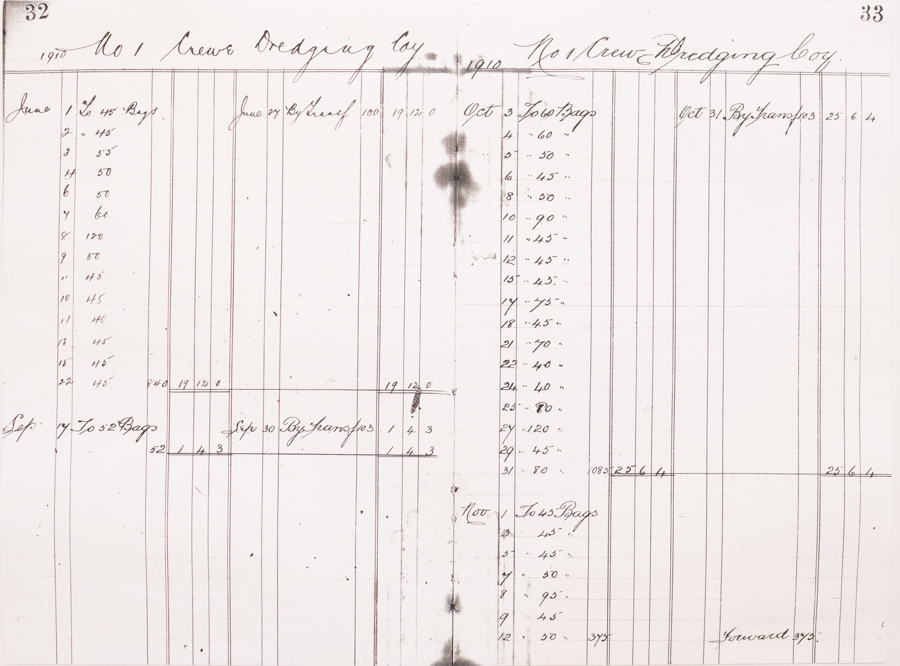 32
1910 No 1 Crewe Dredging Coy
June 1 To 45 Bags June 27 By Transf 100 19 12 0
2 " 45
3 55
4 50
6 50
7 60
8 120
9 50
" 45
10 45
11 40
13 45
15 45
22 45 840 19 12 0 19 12 0
Sep 17 To 52 Bags Sep 30 By Transf 103 1 4 3
52 1 4 3 1 4 3
33
1910 No 1 Crewe Dredging Coy.
Oct 3 To 60 Bags Oct 31 By Transf 103 25 6 4
4 " 60 "
5 " 50 "
6 " 45 "
8 " 50 "
10 " 90 "
11 " 45 "
12 " 45 "
15 " 45 "
17 " 75 "
18 " 45 "
21 " 70 "
22 " 40 "
24 " 40 "
25 " 80 "
27 " 120 "
29 " 45 "
31 " 80 " 1085 25 6 4 25 6 4
Nov 1 To 45 Bags
3 " 45 "
5 " 45 "
7 " 50 "
8 " 95 "
9 " 45
12 " 50 " 375 Forward 375.